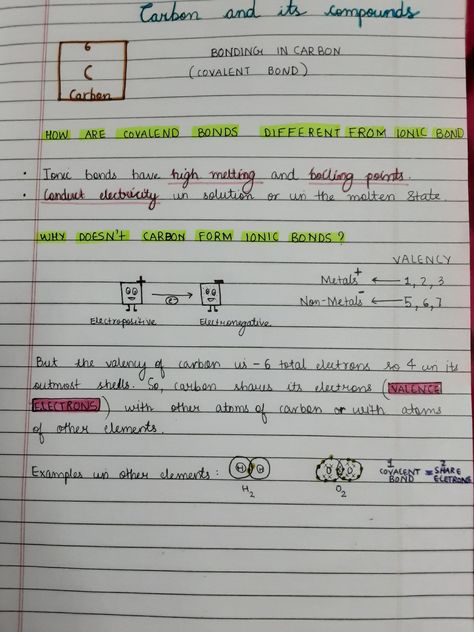 Carbon and its compounds
6
C
Carbon
BONDING IN CARBON
(COVALENT BOND)
HOW ARE COVALEND BONDS DIFFERENT FROM IONIC BOND
• Ionic bonds have high melting and boiling points.
• Conduct electricity in solution or in the molten state.
WHY DOESN'T CARBON FORM IONIC BONDS?
VALENCY
+ − Metals+ ← 1, 2, 3
e → Non-Metals− ← 5, 6, 7
Electropositive Electronegative
But the valency of carbon is - 6 total electrons so 4 in its
outmost shells. So, carbon shares its electrons (VALENCE
ELECTRONS) with other atoms of carbon or with atoms
of other elements.
Examples in other elements: H H O O 1 COVALENT BOND = 2 SHARE ELETRONS
H2 O2